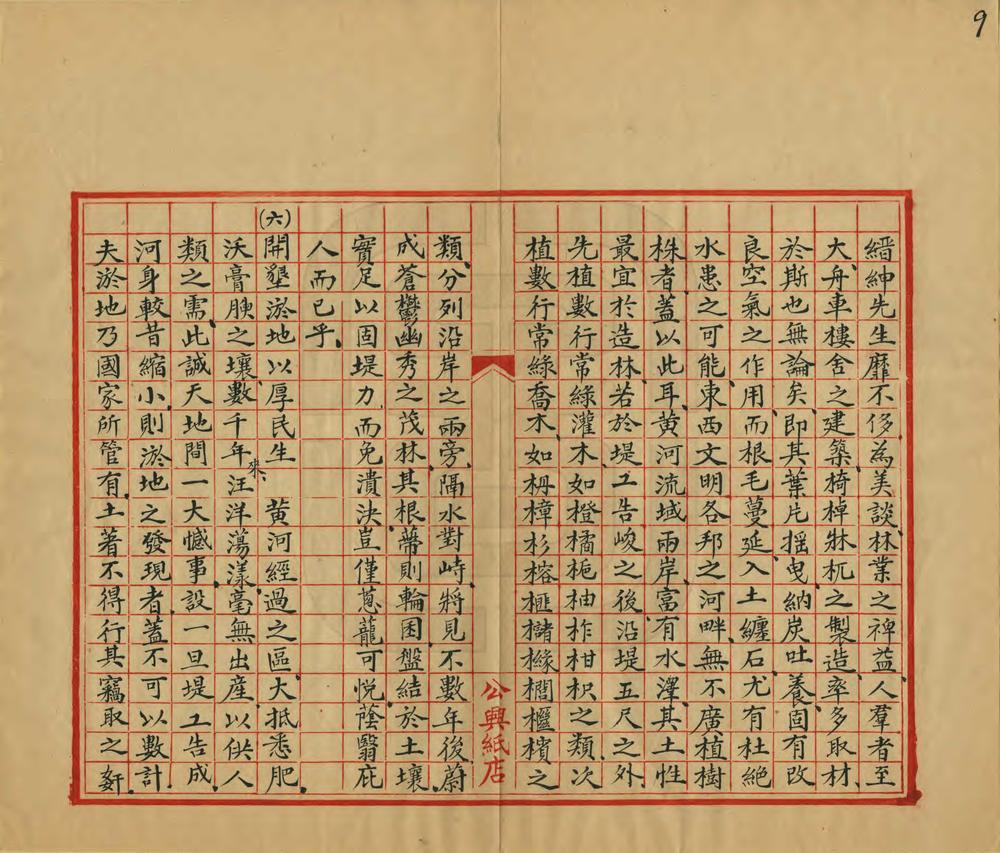 9
縉紳先生靡不侈為美談、林業之裨益人羣者至
大、舟車樓舍之建築、椅棹牀杌之製造、率多取材
於斯也無論矣、即其葉片搖曳、納炭吐養、固有改
良空氣之作用、而根毛蔓延、入土纏石、尤有杜絕
水患之可能、東西文明各邦之河畔、無不廣植樹
株者、蓋以此耳、黃河流域兩岸、富有水澤、其土性
最宜於造林、若於堤工告峻之後、沿堤五尺之外
先植數行常綠灌木、如橙橘梔柚柞柑枳之類、次
植數行常綠喬木、如枏樟杉榕榧櫧橡櫚櫃檳之
公興紙店
類、分列沿岸之兩旁、隔水對峙、將見不數年後、蔚
成蒼鬱幽秀之茂林、其根蒂則輪囷盤結於土壤、
實足以固堤力而免潰決、豈僅蔥蘢可悅、蔭翳庇
人而已乎、
(六)開墾淤地以厚民生 黃河經過之區、大抵悉肥
沃膏腴之壤、數千年來、汪洋蕩漾、毫無出產、以供人
類之需、此誠天地間一大憾事、設一旦堤工告成、
河身較昔縮小、則淤地之發現者、蓋不可以數計、
夫淤地乃國家所管有、土著不得行其竊取之姧、